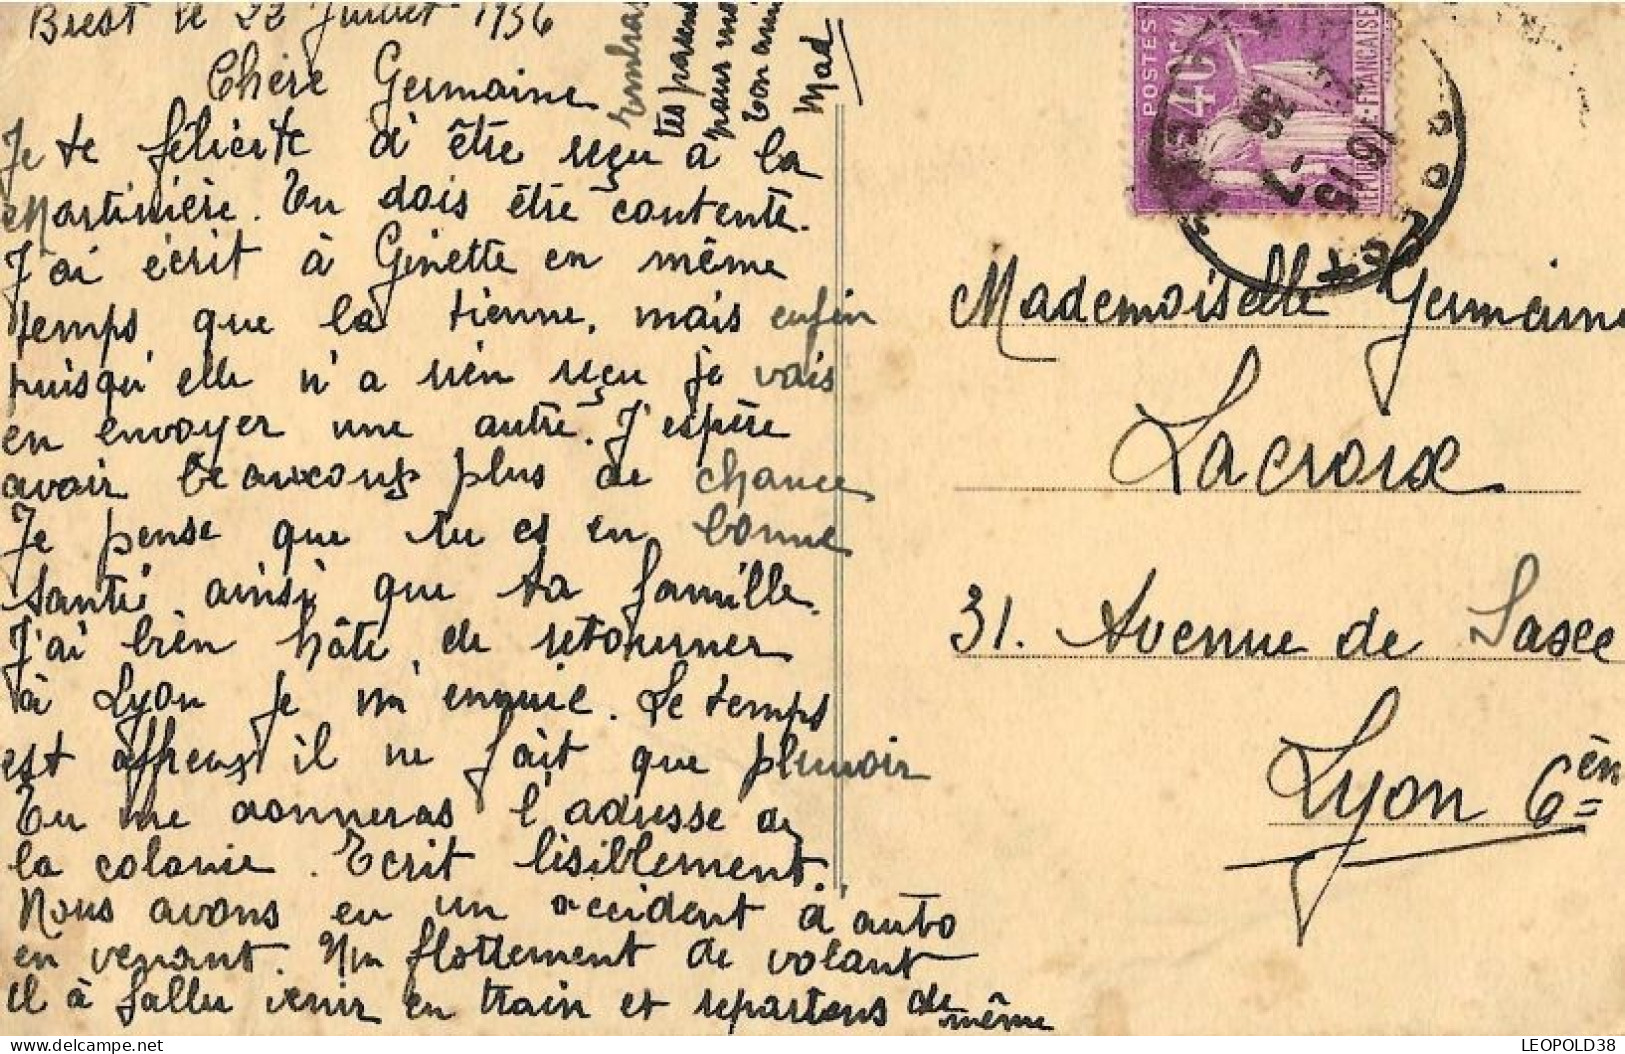 Brest le 22 Juillet 1936
Chère Germaine
Je te félicite d'être reçu à la
Martinière. Tu dois être contente.
J'ai écrit à Ginette en même
temps que la tienne, mais enfin
puisqu'elle n'a rien reçu je vais
en envoyer une autre. J'espère
avoir beaucoup plus de chance
Je pense que tu es en bonne
santé ainsi que ta famille.
J'ai bien hâte de retourner
à Lyon je m'ennuie. Le temps
est affreux il ne fait que pleuvoir
Tu me donneras l'adresse de
la colonie. Ecrit lisiblement.
Nous avons eu un accident d'auto
en venant. Un flottement de volant
il à fallu venir en train et repartons de même
tes parents
pour moi
Ton amie
Mad
POSTES
40c
REPUBLIQUE-FRANÇAISE
1615
-7
36
Mademoiselle Germaine
Lacroix
31. Avenue de Saxe
Lyon 6èm
LEOPOLD38